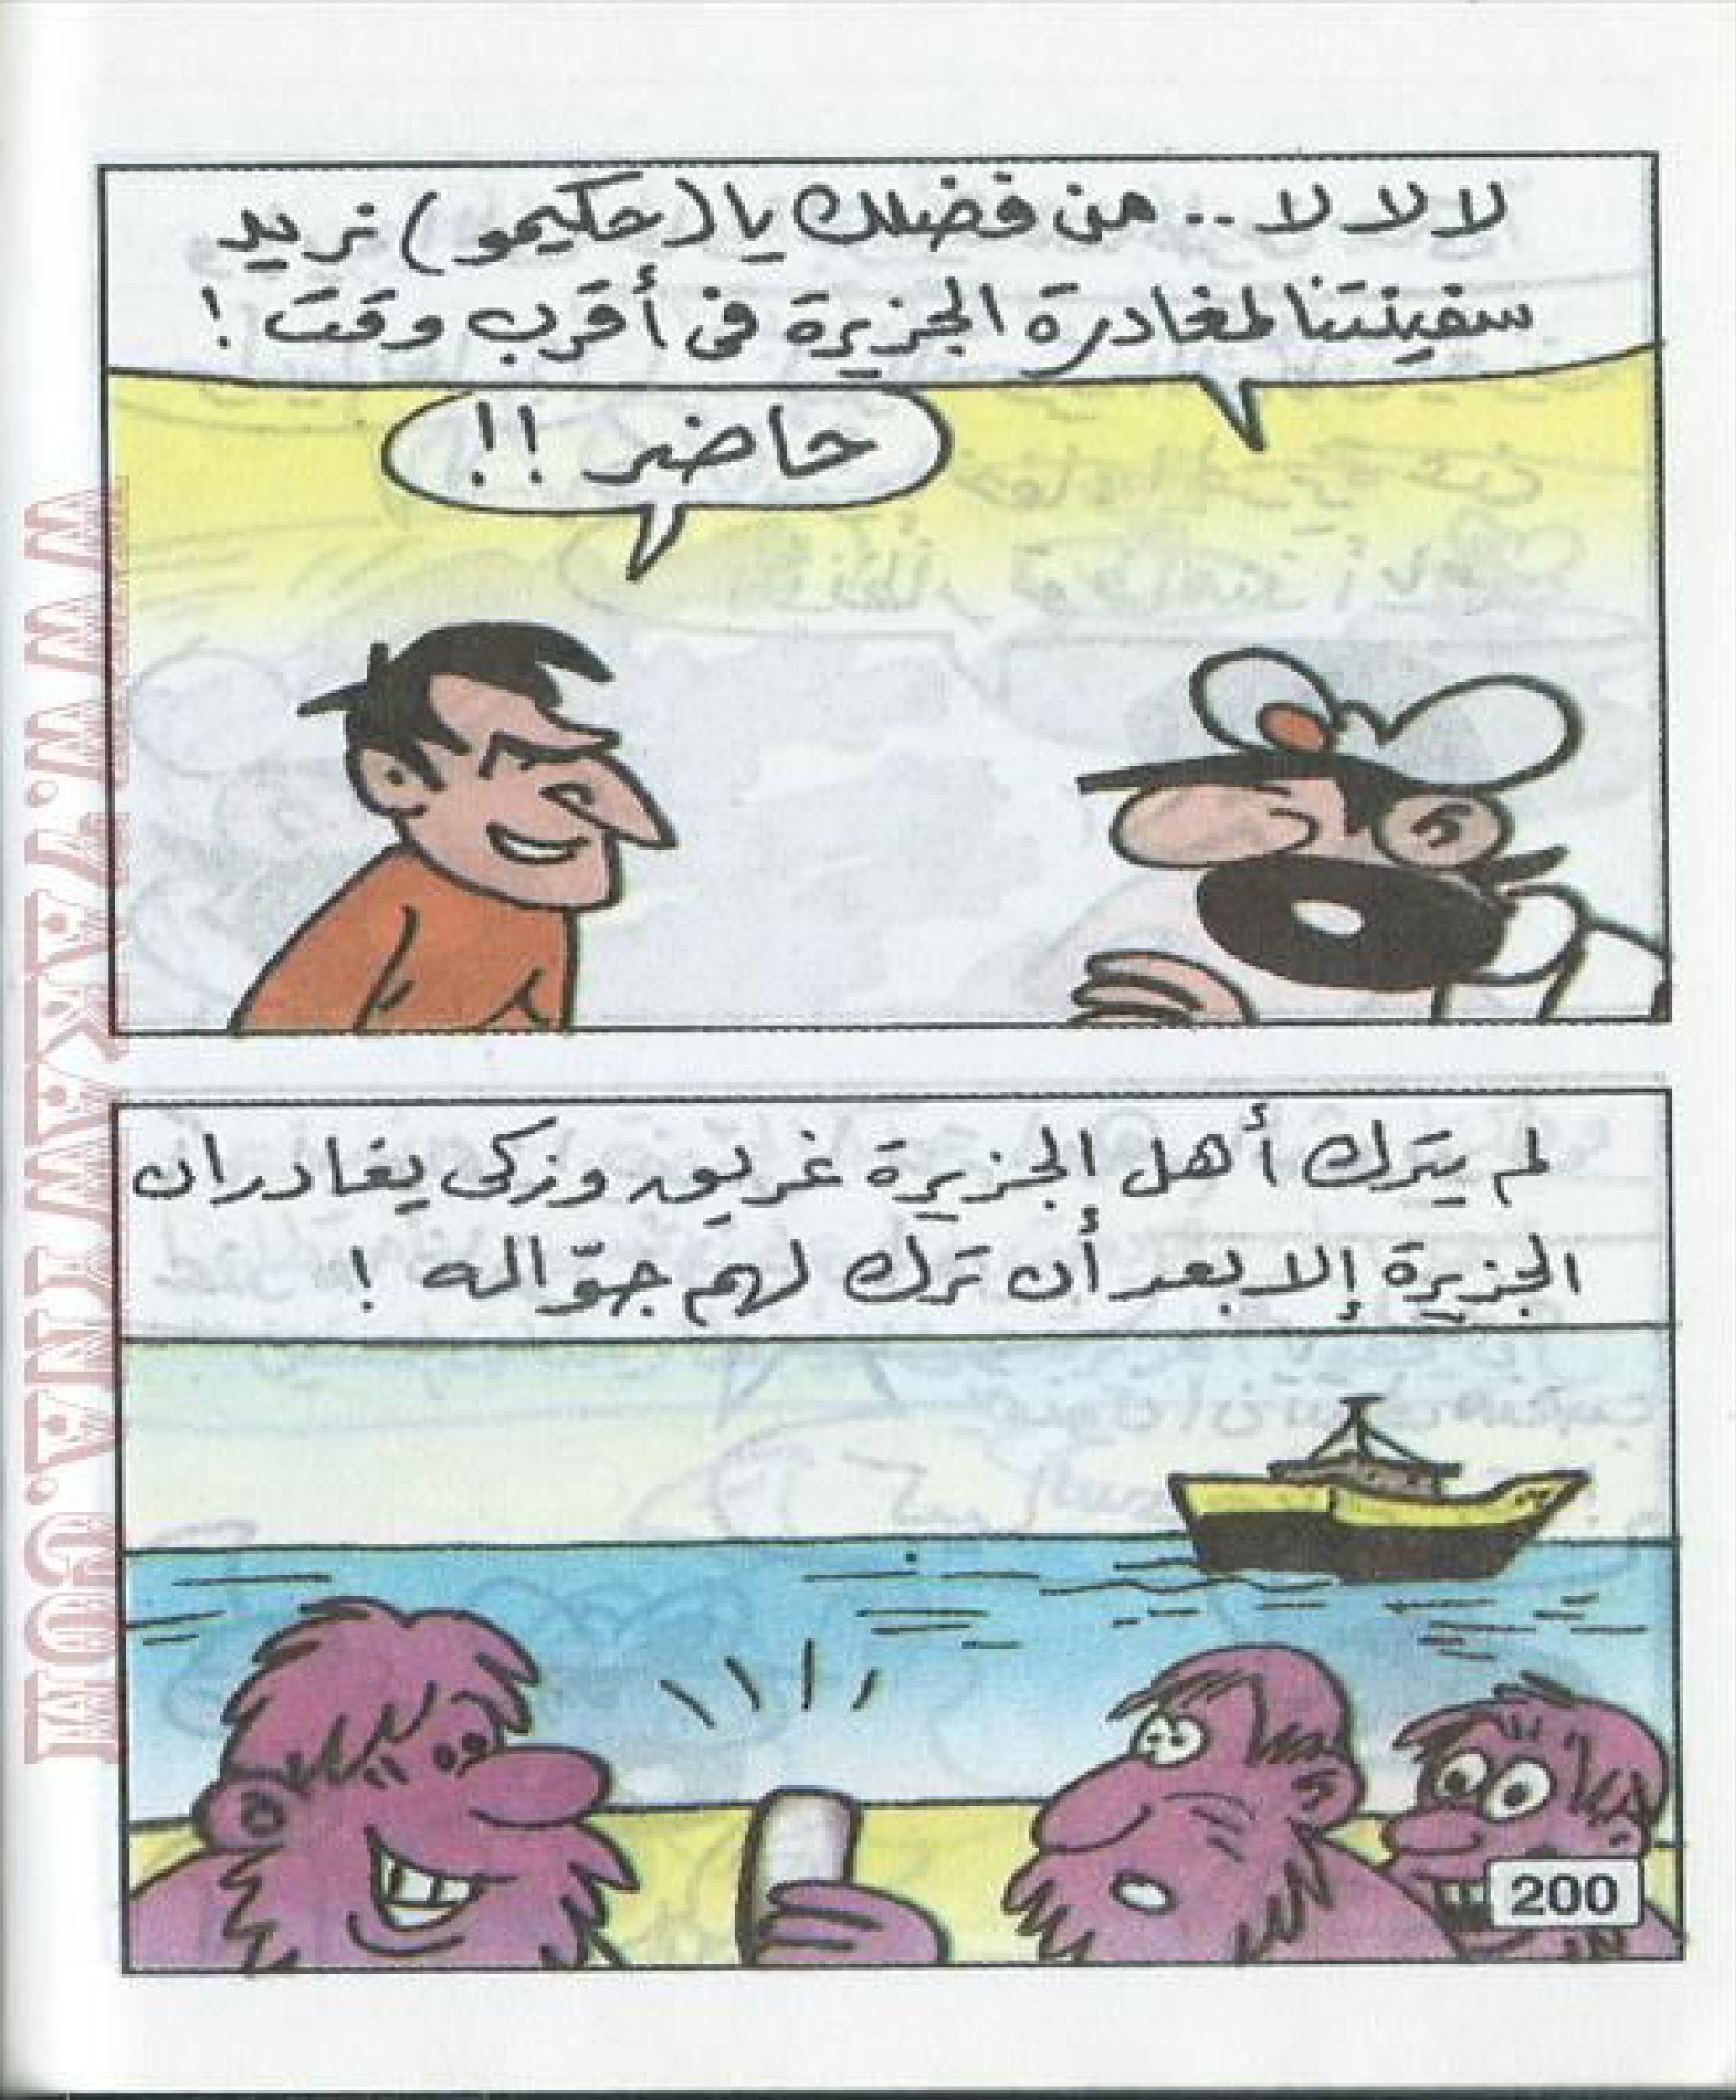 لا لا لا .. من فضلك يا (حكيمو) نريد
سفينتنا لمغادرة الجزيرة فى أقرب وقت !
حاضر !!
لم يترك أهل الجزيرة غريق وزكى يغادران
الجزيرة إلا بعد أن ترك لهم جوّاله !
200
WWW.7AKAWTNA.COM